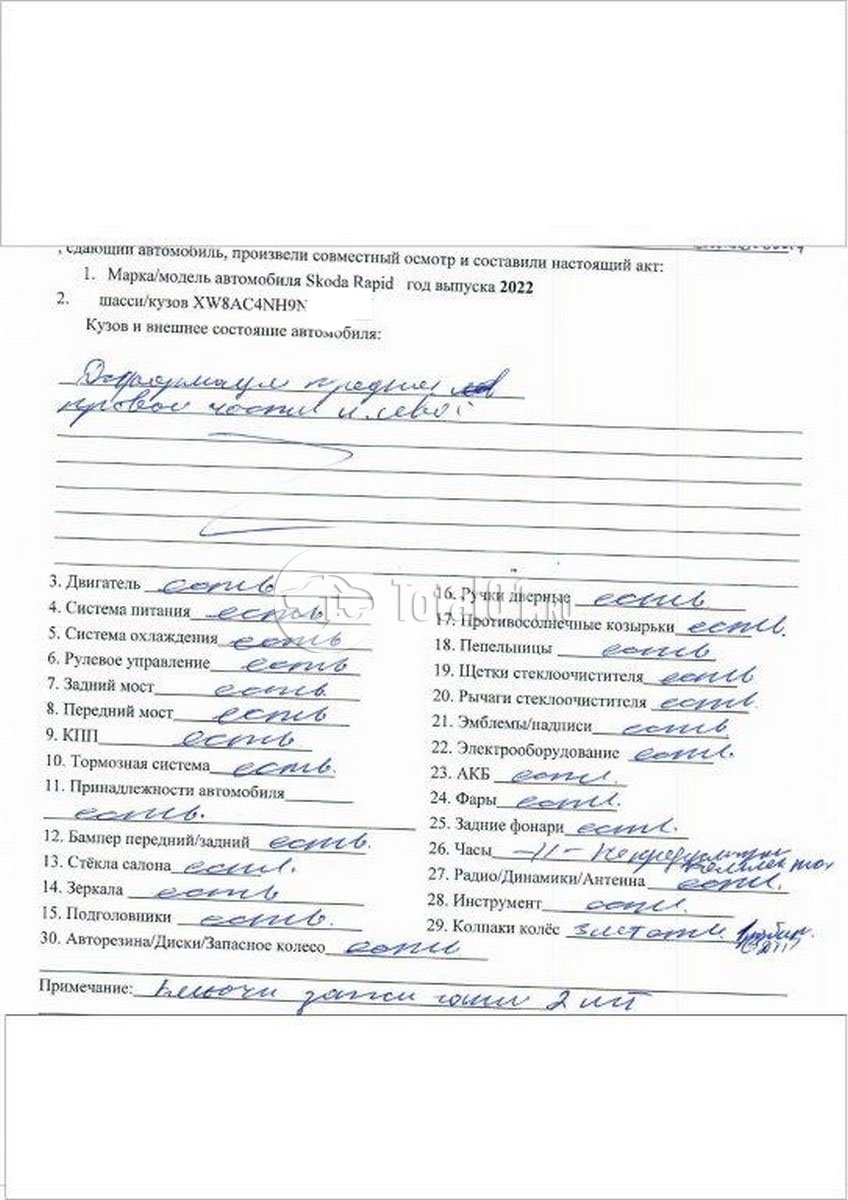 , сдающий автомобиль, произвели совместный осмотр и составили настоящий акт:
1. Марка/модель автомобиля Skoda Rapid год выпуска 2022
2. шасси/кузов XW8AC4NH9N
Кузов и внешнее состояние автомобиля:
Деформация передней
правой части и левой
3. Двигатель есть
4. Система питания есть
5. Система охлаждения есть
6. Рулевое управление есть
7. Задний мост есть
8. Передний мост есть
9. КПП есть
10. Тормозная система есть.
11. Принадлежности автомобиля
есть.
12. Бампер передний/задний есть.
13. Стёкла салона есть.
14. Зеркала есть
15. Подголовники есть.
30. Авторезина/Диски/Запасное колесо есть
16. Ручки дверные есть
17. Противосолнечные козырьки есть.
18. Пепельницы есть
19. Щетки стеклоочистителя есть
20. Рычаги стеклоочистителя есть
21. Эмблемы/надписи есть
22. Электрооборудование есть.
23. АКБ есть.
24. Фары есть.
25. Задние фонари есть.
26. Часы -//-
27. Радио/Динамики/Антенна есть.
28. Инструмент есть.
29. Колпаки колёс
Примечание: Ключи зажигания 2 шт
Total01.ru